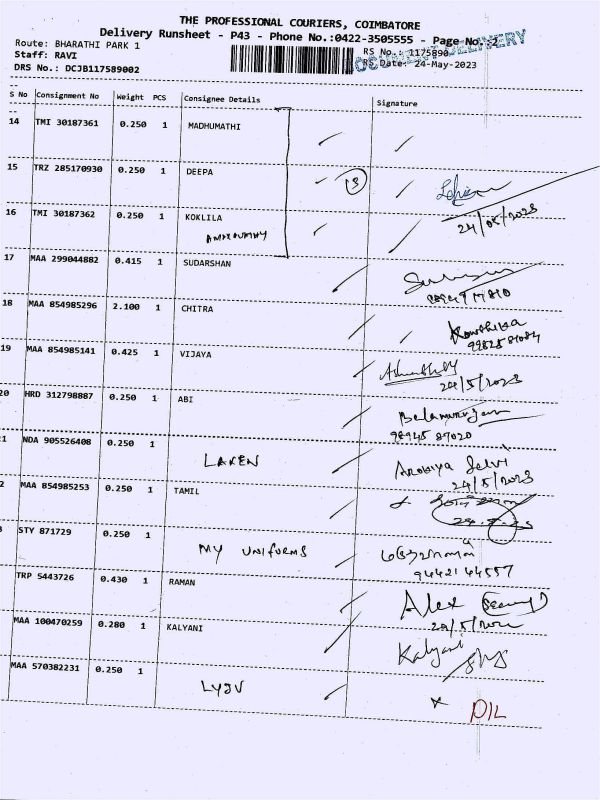 THE PROFESSIONAL COURIERS, COIMBATORE
Delivery Runsheet - P43 - Phone No.:0422-3505555 - Page No.:2
Route: BHARATHI PARK 1 RS No.: 1175890
Staff: RAVI RS Date: 24-May-2023
DRS No.: DCJB117589002
DELIVERY
S No Consignment No Weight PCS Consignee Details Signature
14 TMI 30187361 0.250 1 MADHUMATHI
15 TRZ 285170930 0.250 1 DEEPA 13
24/05/2023
16 TMI 30187362 0.250 1 KOKLILA
17 MAA 299044882 0.415 1 SUDARSHAN
18 MAA 854985296 2.100 1 CHITRA
19 MAA 854985141 0.425 1 VIJAYA
24/5/2023
20 HRD 312798887 0.250 1 ABI
98945 87020
1 NDA 905526408 0.250 1 LAREN
24/5/2023
2 MAA 854985253 0.250 1 TAMIL
3 STY 871729 0.250 1 MY UNIFORMS
9442144557
TRP 5443726 0.430 1 RAMAN Alex
MAA 100470259 0.280 1 KALYANI Kalyani
MAA 570382231 0.250 1 D/L